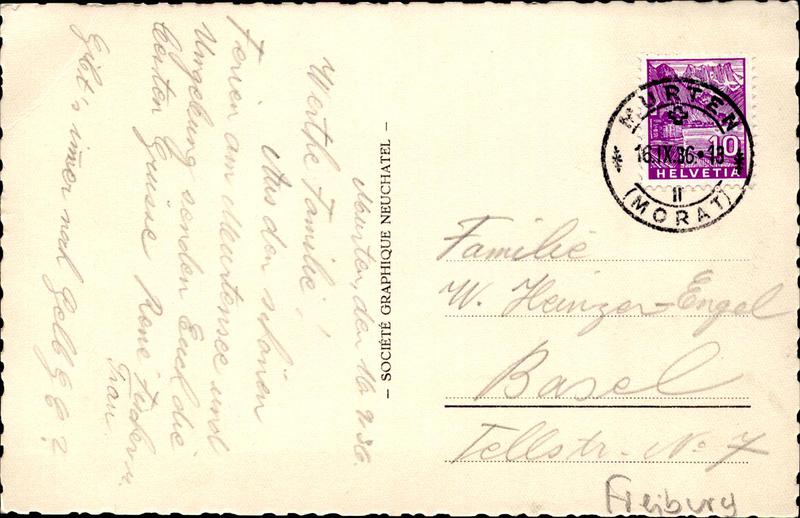 Murten, den 16.9.36.
Werthe Familie!
Aus den schönen
Ferien am Murtensee und
Umgebung senden Euch die
besten Grüsse René u.
Frau.
Gibt's immer noch
- SOCIÉTÉ GRAPHIQUE NEUCHATEL -
MURTEN
16.IX.36
II
(MORAT)
10
HELVETIA
Familie
W. Heinzer-Engel
Basel
Tellstr. No 7
Freiburg